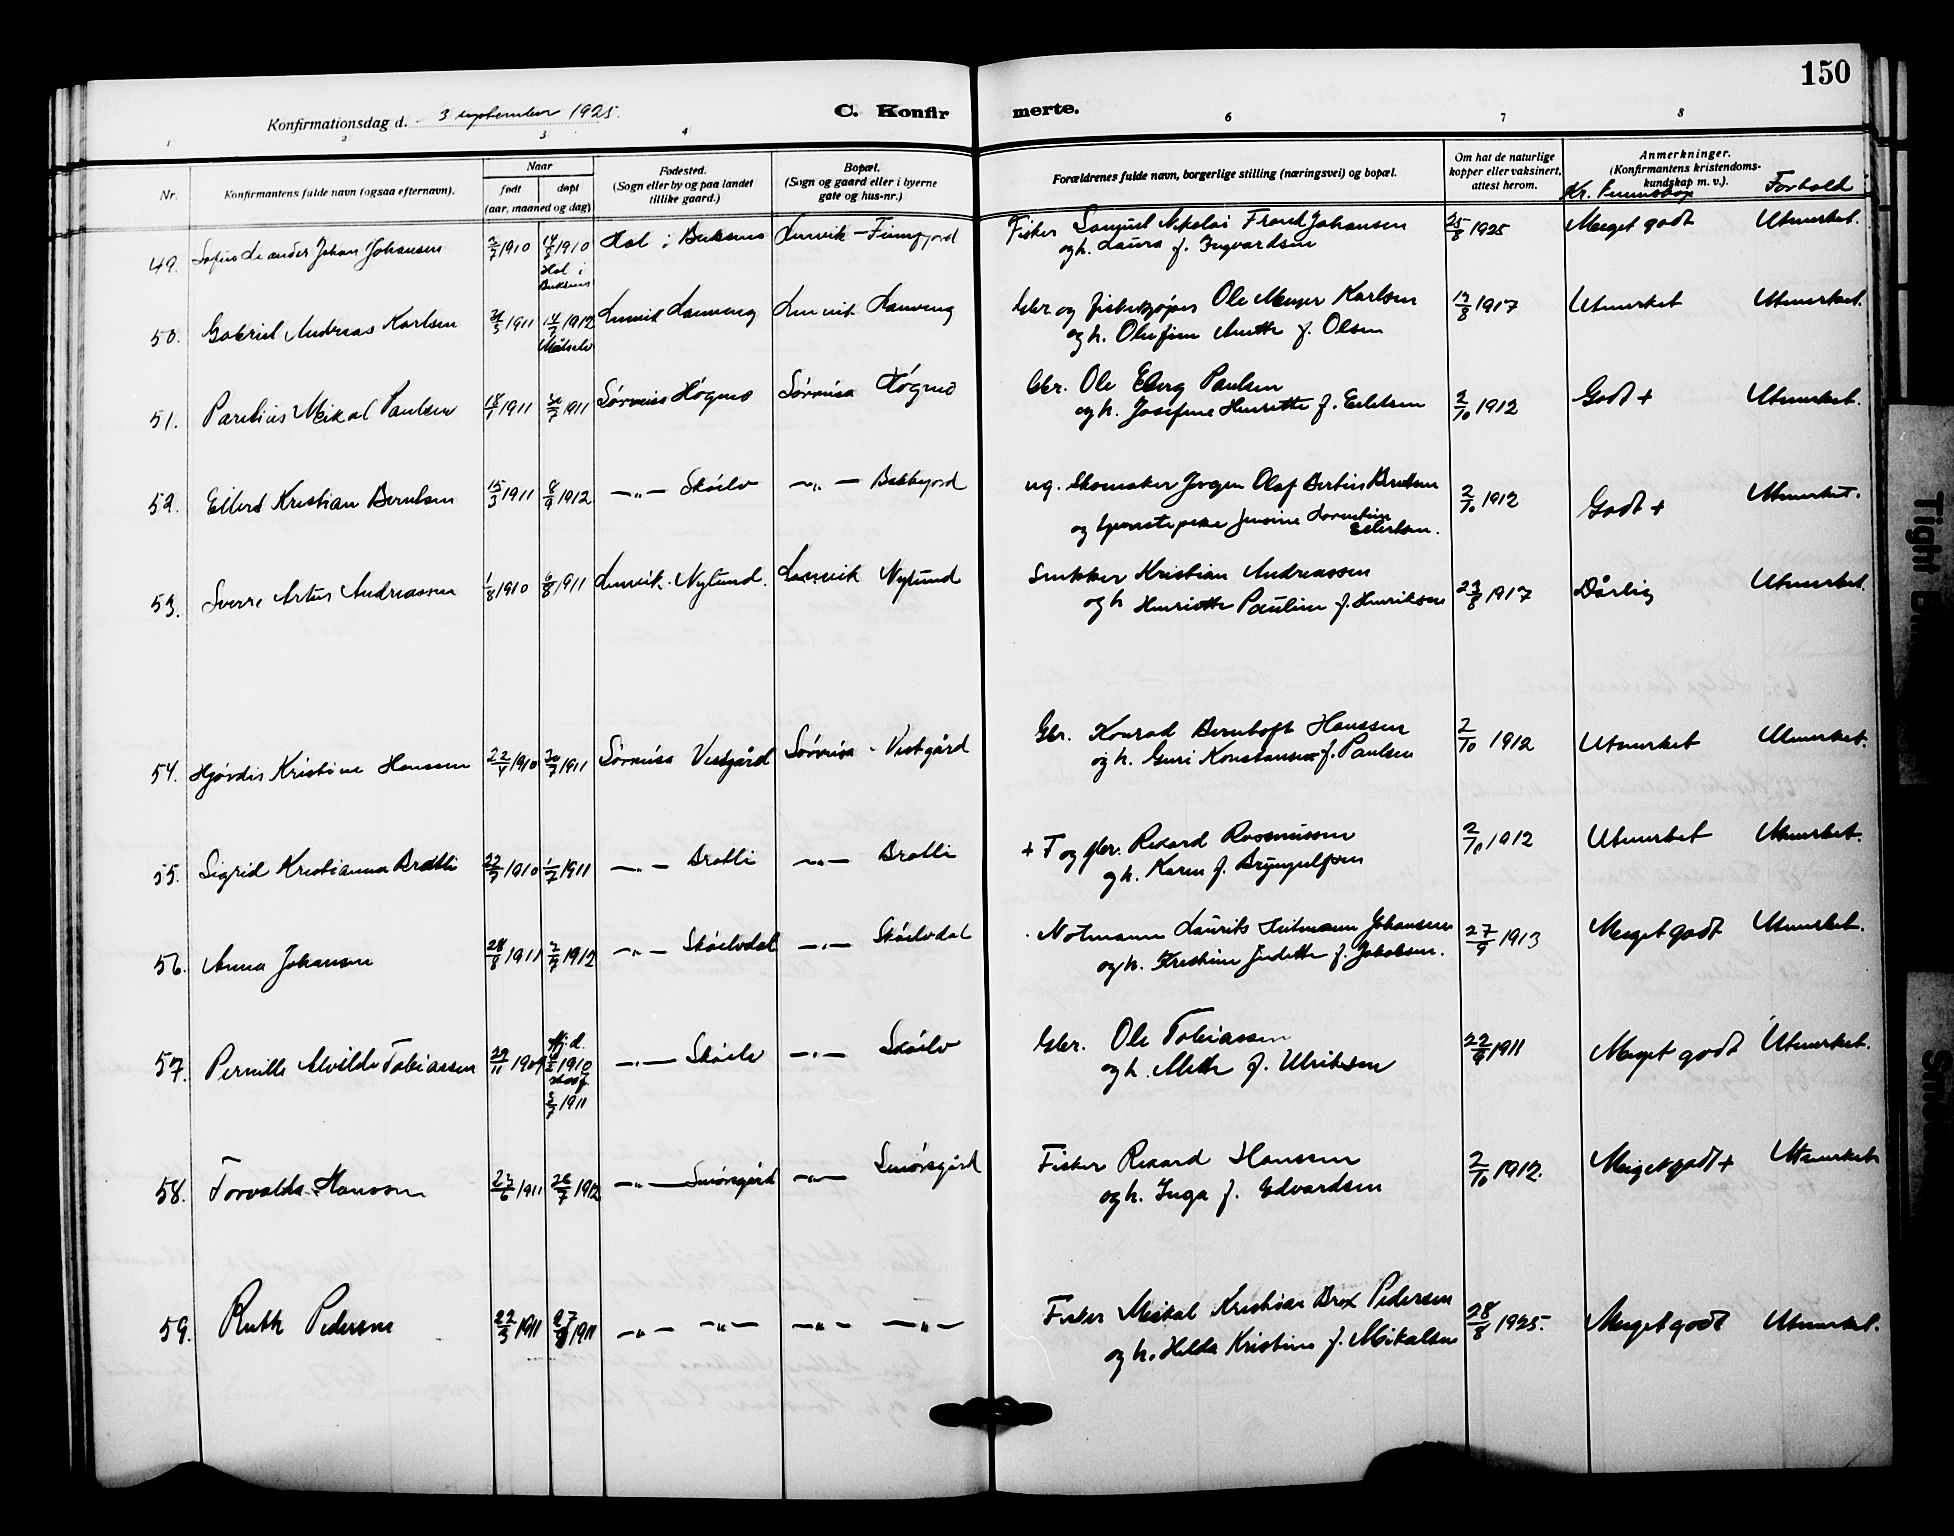 150
Konfirmationsdag d. 3 september 1925.
C. Konfirmerte.
1 2 3 4 6 7 8
Nr. Konfirmantens fulde navn (ogsaa efternavn). Naar født døpt (aar, maaned og dag) Fødested. (Sogn eller by og paa landet tillike gaard.) Bopæl. (Sogn og gaard eller i byerne gate og hus-nr.) Forældrenes fulde navn, borgerlige stilling (næringsvei) og bopæl. Om hat de naturlige kopper eller vaksinert, attest herom. Anmerkninger. (Konfirmantens kristendoms-kundskap m. v.).
Kr. Kunnskap Forhold
49. Sofus Leander Johan Johansen 1910 1910 Hol i Buksnes Lenvik - Finnfjord Fisker Samuel Nikolai Frank Johansen 25/8 1925 Meget godt Utmerket.
Hol i Buksnes og h. Laura f. Ingvardsen
50. Gabriel Andreas Karlsen 1911 1912 Lenvik Lanveng Lenvik Lanveng Gbr og fiskekjøper Ole Meyer Karlsen 1917 Utmerket Utmerket.
Målselv og h. Olufine Anette f. Olsen
51. Parelius Meikal Paulsen 18/1 1911 30/7 1911 Sørreisa Høgmo Sørreisa Høgmo Gbr. Ole Eberg Paulsen 2/10 1912 Godt + Utmerket.
og h. Josefine Henrette f. Eilertsen
52. Eilert Kristian Berntsen 15/3 1911 8/9 1912 —„— Skóelv —„— Bakkejord ug. Skomaker Jørgen Olaf Bertin Berntsen 2/10 1912 Godt + Utmerket.
og tjenestepike Jensine Eilertsen.
53. Sverre Artur Andreassen 1/8 1910 6/8 1911 Lenvik Nylund. Lenvik Nylund Snekker Kristian Andreassen 23/8 1917 Dårlig Utmerket.
og h Henriette Pauline f. Henriksen
54. Hjørdis Kristine Hanssen 22/4 1910 30/7 1911 Sørreisa Vestgård Sørreisa - Vestgård Gbr. Konrad Berntoft Hanssen 2/10 1912 Utmerket Utmerket.
og h. Guri Konstanse f. Paulsen
55. Sigrid Kristianna Bratli 1910 1/7 1911 —„— Bratli —„— Bratli + F og gbr. Rikard Rasmussen 2/10 1912 Utmerket Utmerket.
og h. Karen f. Brynjulfsen
56. Anna Johansen 28/8 1911 2/7 1912 —„— Skóelvdal —„— Skóelvdal Notmann Laurits Heitmann Johansen 27/9 1913 Meget godt Utmerket.
og h. Kristine Judette f. Jakobsen.
57. Pernille Alvilde Tobiassen 29/11 1909 Hj.d. 1910 —„— Skóelv —„— Skóelv Gbr. Ole Tobiassen 22/9 1911 Meget godt Utmerket.
2/7 1911 og h. Mette f. Ulriksen
58. Torvalda Hanssen 23/6 1911 26/7 1912 —„— Smórsgård —„— Smórsgård Fisker Rikard Hanssen 2/10 1912. Meget godt + Utmerket
og h. Inga f. Edvardsen
59. Ruth Pedersen 22/3 1911 1911 —„— —„— —„— —„— Fisker Meikal Kristian Brox Pedersen 28/8 1925. Meget godt Utmerket.
og h. Hilda Kristine f. Mikalsen
Tight